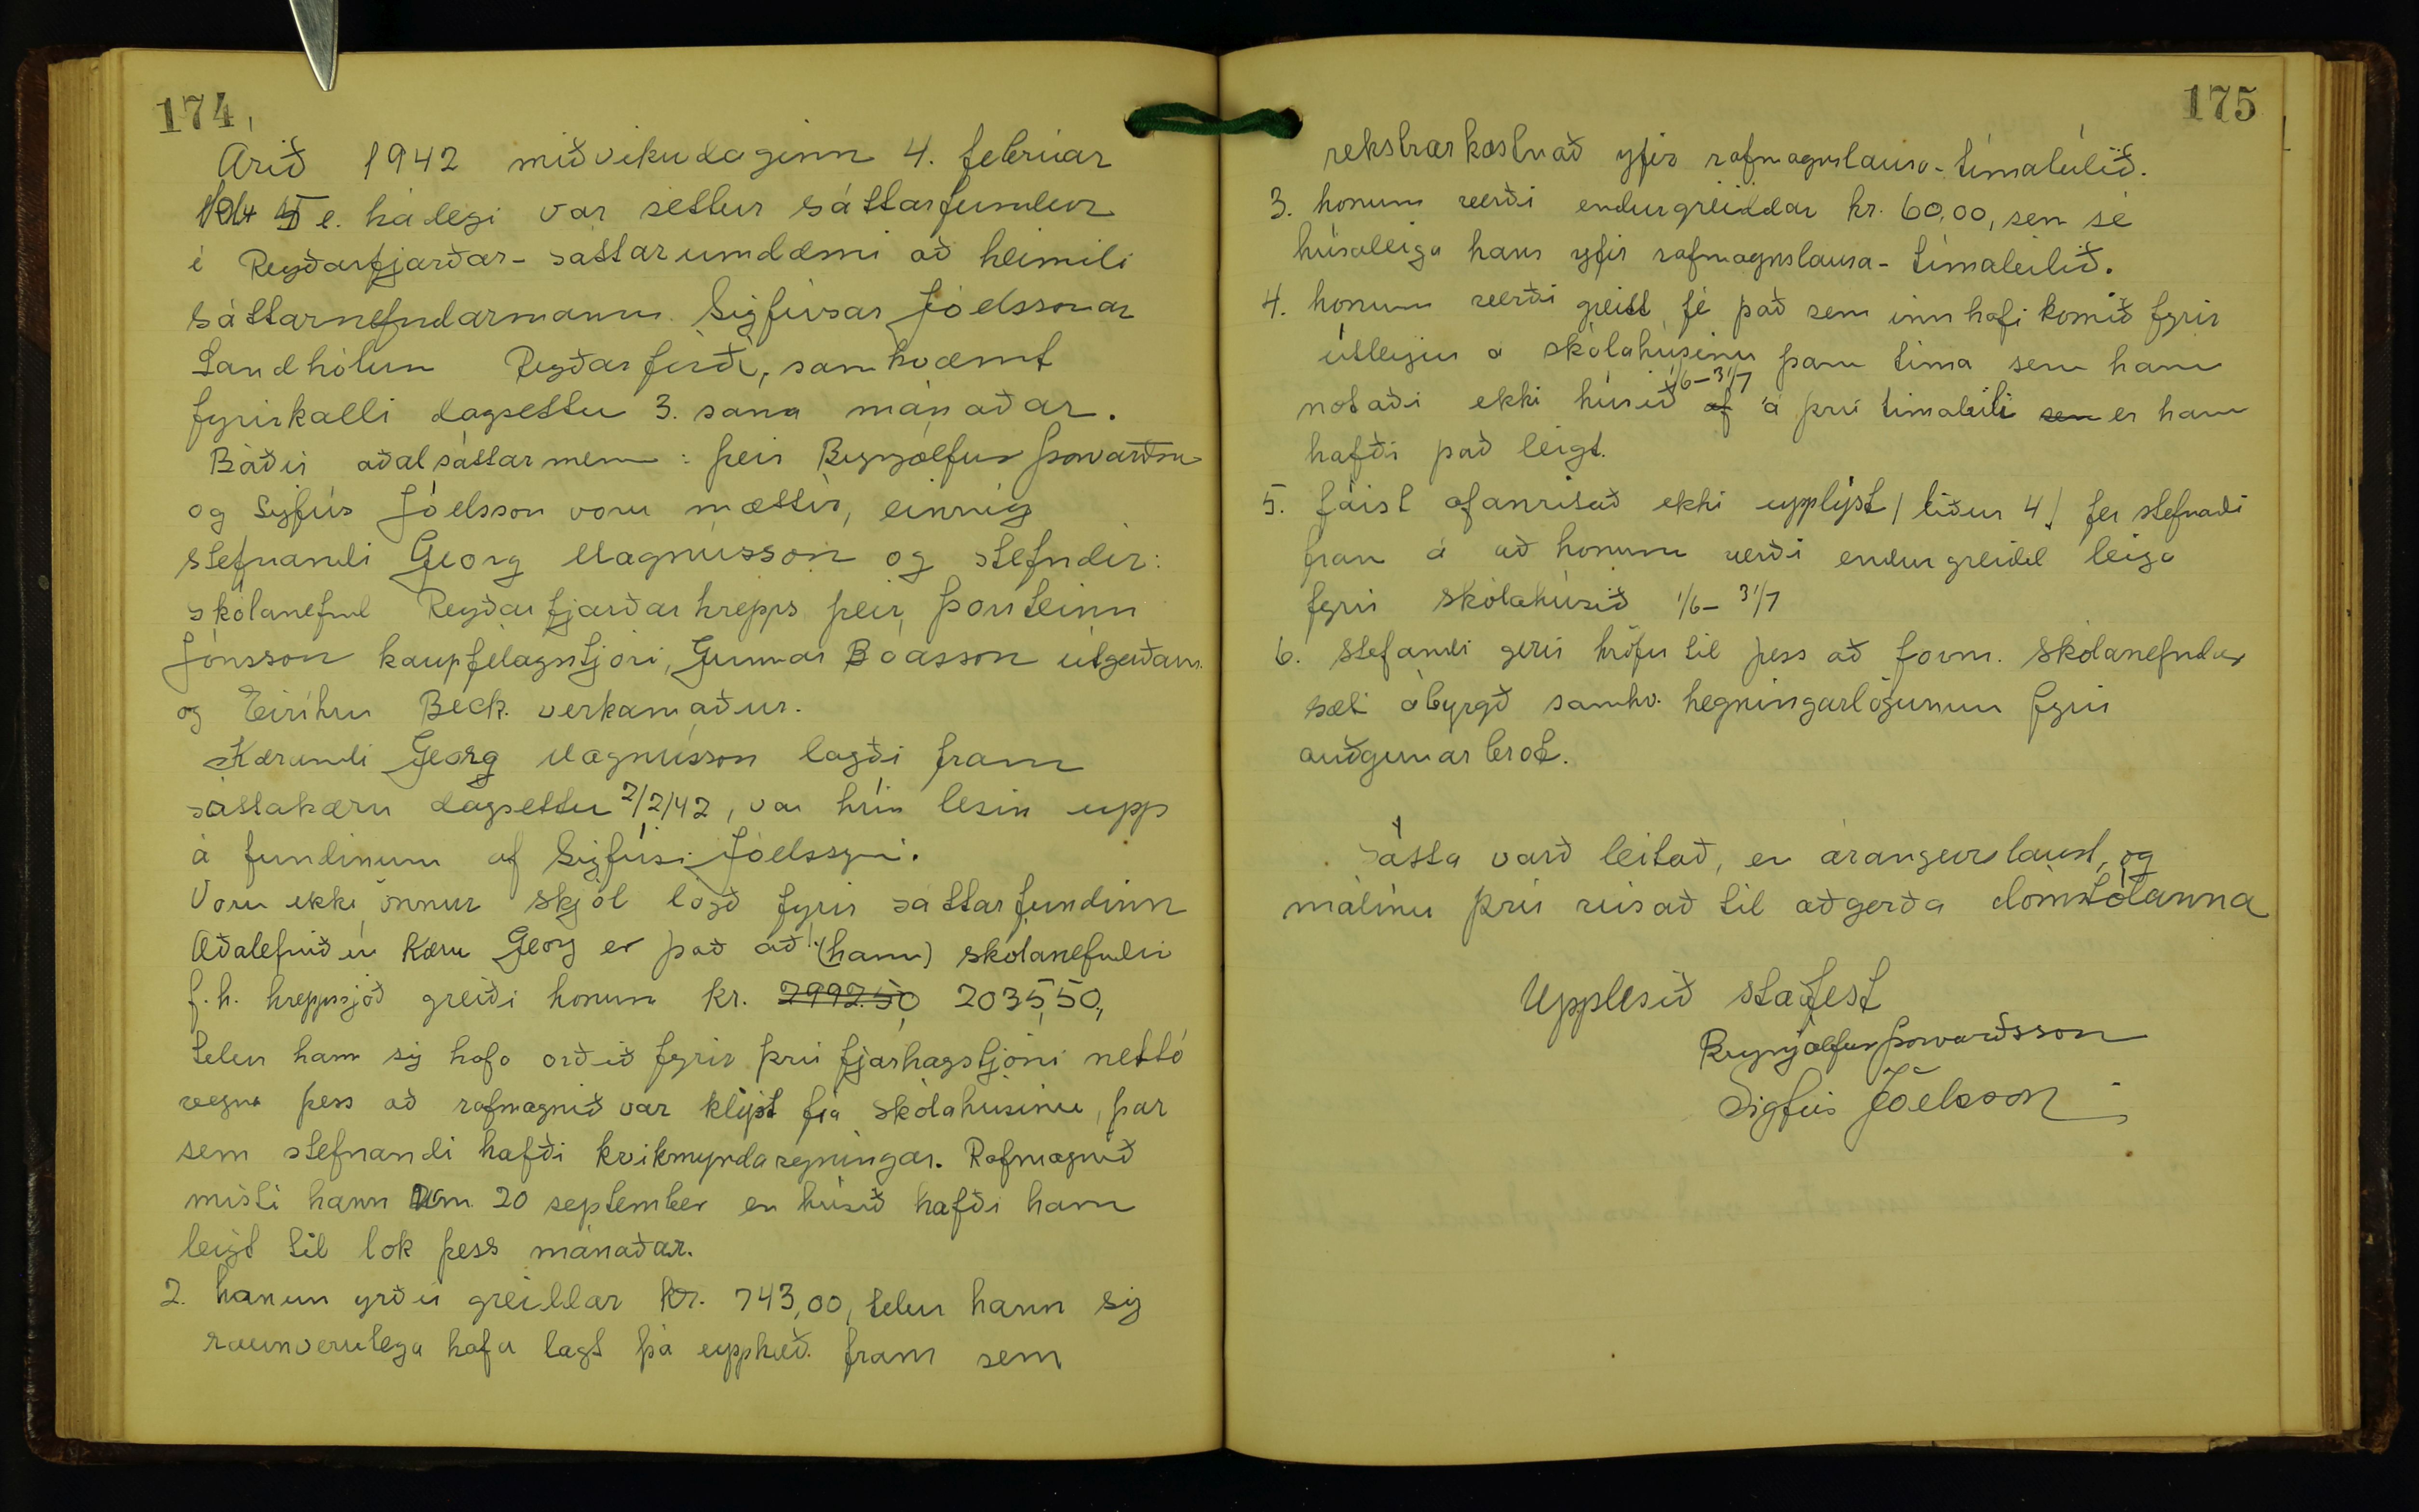 174
Árið 1942 miðvikudaginn 4. febrúar
e. hádegi var settur sáttarfundur
í Reyðarfjarðar-sáttarumdæmi að heimili
sáttarnefndarmanns Sigfúsar Jóelssonar
Sandhólum Reyðarfirði, samkvæmt
fyrirkalli dagsettu 3. sama mánaðar.
Báðir aðalsáttarmenn: þeir Brynjólfur Þorvarðsson
og Sigfús Jóelsson voru mættir, einnig
stefnandi Georg Magnússon og stefndir:
skólanefnd Reyðarfjarðarhrepps þeir, Þorsteinn
Jónsson kaupfélagsstjóri, Gunnar Bóasson útgerðarm.
og Eiríkur Beck. verkamaður.
Kærandi Georg Magnússon lagði fram
sáttakæru dagsettu 2/2/42, var hún lesin upp
á fundinum af Sigfúsi Jóelssyni.
Voru ekki önnur skjöl lögð fyrir sáttarfundinn
Aðalefnið úr kæru Georg er það að 1. (hann) skólanefndin
f.h. hreppssjóð greiði honum kr. 2992.50 2035,50,
telur hann sig hafa orðið fyrir því fjárhagstjóni nettó
vegna þess að rafmagnið var klipt frá skólahúsinu, þar
sem stefnandi hafði kvikmyndasýningar. Rafmagnið
misti hann um 20 september en húsið hafði hann
leigt til lok þess mánaðar.
2. honum yrðir greiddar kr. 743,00, telur hann sig
raunverulega hafa lagt þá upphæð fram sem
175
rekstrarkostnað yfir rafmagnslausa-tímabilið.
3. honum verði endurgreiddar kr. 60,00, sem sé
húsaleiga hans yfir rafmagnslausa-tímabilið.
4. honum verði greitt fé það sem inn hafi komið fyrir
útleigu á skólahúsinu þann tíma sem hann
notaði ekki húsið af 1/6-31/7 á því tímabili sem er hann
hafði það leigt.
5. fáist ofanritað ekki upplýst /liður 4/ fer stefnandi
fram á að honum verði endurgreidd leiga
fyrir skólahúsið 1/6- 31/7
6. stefandi gerir kröfu til þess að form. skólanefndar
sæti ábyrgð samkv. hegningarlögunum fyrir
auðgunarbrot.
Sátta varð leitað, en árangurslaust, og
málinu því vísað til aðgerða dómstólanna
Upplesið staðfest
Brynjólfur Þorvarðsson
Sigfús Jóelsson